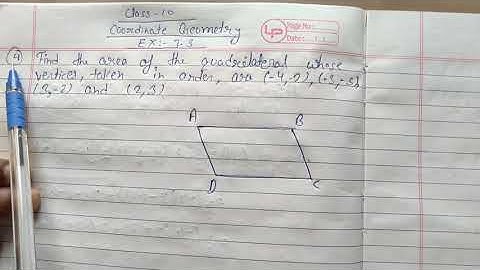 Class-10
Coordinate Geometry
EX:- 7.3
Page No:
Date:
4 Find the area of the quadrilateral whose
vertices, taken in order, are (-4,-2), (-3,-5),
(3,-2) and (2,3)
A B
D C